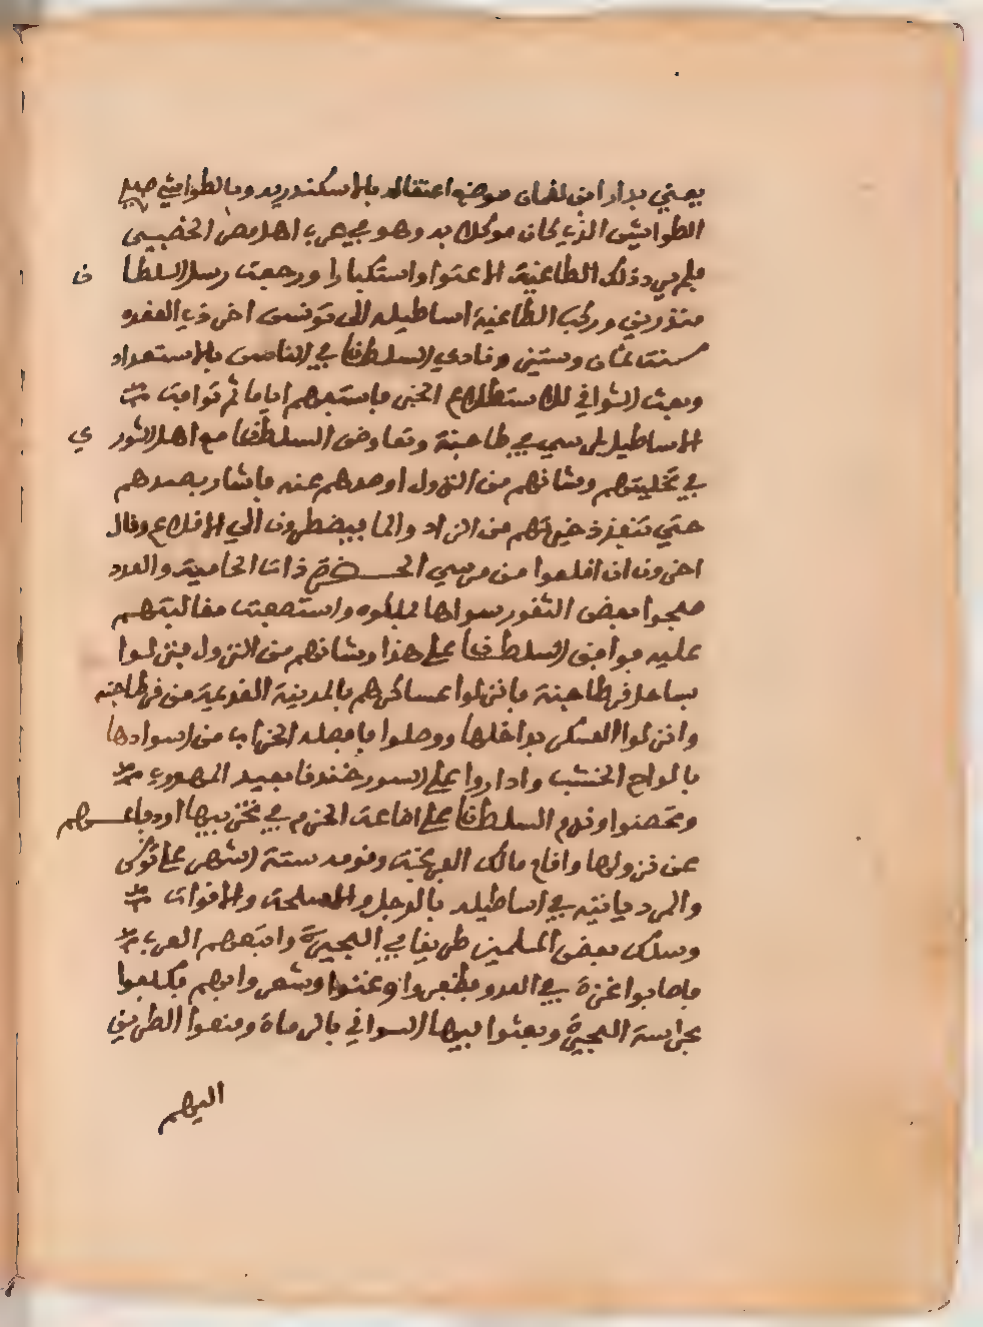 يعني بدار ابن لقمان موضع اعتقاله بالاسكندرية وبالطواشي صبيح
الطواشي الذي كان موكلا به وهو في عرب اهل مصر الخصيي
فلم يزد ذلك الطاغية الا عتوا واستكبارا ورجعت رسل السلطا ن
منذرين وركب الطاغية اساطيله الى تونس اخر ذي القعدة
سنة ثمان وستين ونادى السلطان في الناس بالاستعداد
وبعث الشواني للاستطلاع الخبر فاستبهم اياما ثم توافت
الاساطيل بمرسى قرطاجنة وتفاوض السلطان مع اهل الشور ي
في تخليتهم وشانهم من النزول او صدهم عنه فاشار بصدهم
حتى تنفد ذخيرتهم من الزاد والما فيضطرون الى الاقلاع وقال
اخرون ان اقلعوا من مرسى الحضرة ذات الحامية والعدد
صبحوا بعض الثغور سواها فملكوه واستصعبت مغالبتهم
عليه فوافق السلطان على هذا وشانهم من النزول فنزلوا
بساحل قرطاجنة فانزلوا عساكرهم بالمدينة القديمة من قرطاجنه
وانزلوا العسكر بداخلها ووصلوا ما فصله الخراب من اسوارها
بالواح الخشب واداروا على السور خندقا بعيد المهوى
وتحصنوا وندم السلطان على اضاعة الحزم في تخريبها او دفاعهم
عن نزولها واقام مالك الفرنجة وقومه ستة اشهر على تونس
والمدد ياتيه في اساطيله بالرجل والاسلحة والاقوات
وسلك بعض المسلمين طريقا في البحيرة واتبعهم العرب
فاصابوا غرة في العدو فظفروا وغنموا وشعروا بهم فكلفوا
بحراسة البحيرة وبعثوا فيها الشواني بالرماة ومنعوا الطريق
اليهم